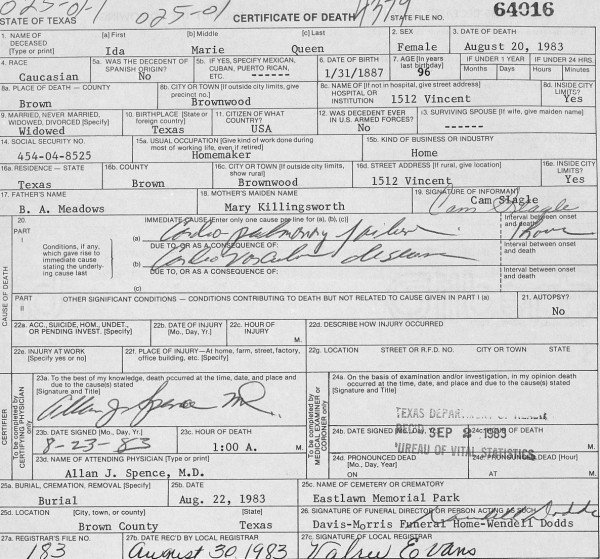 025-0-1 025-01 4379
STATE OF TEXAS CERTIFICATE OF DEATH STATE FILE NO. 64016
1. NAME OF DECEASED [Type or print] (a) First (b) Middle (c) Last 2. SEX 3. DATE OF DEATH
Ida Marie Queen Female August 20, 1983
4. RACE 5a. WAS THE DECEDENT OF SPANISH ORIGIN? 5b. IF YES, SPECIFY MEXICAN, CUBAN, PUERTO RICAN, ETC. 6. DATE OF BIRTH 7. AGE [In years last birthday] IF UNDER 1 YEAR IF UNDER 24 HRS.
Months Days Hours Minutes
Caucasian No ------ 1/31/1887 96
8a. PLACE OF DEATH — COUNTY 8b. CITY OR TOWN [If outside city limits, give precinct no.] 8c. NAME OF [If not in hospital, give street address] HOSPITAL OR INSTITUTION 8d. INSIDE CITY LIMITS?
Brown Brownwood 1512 Vincent Yes
9. MARRIED, NEVER MARRIED, WIDOWED, DIVORCED [Specify] 10. BIRTHPLACE [State or foreign country] 11. CITIZEN OF WHAT COUNTRY? 12. WAS DECEDENT EVER IN U.S. ARMED FORCES? 13. SURVIVING SPOUSE [If wife, give maiden name]
Widowed Texas USA No ------
14. SOCIAL SECURITY NO. 15a. USUAL OCCUPATION [Give kind of work done during most of working life, even if retired] 15b. KIND OF BUSINESS OR INDUSTRY
454-04-8525 Homemaker Home
16a. RESIDENCE — STATE 16b. COUNTY 16c. CITY OR TOWN [If outside city limits, show rural] 16d. STREET ADDRESS [If rural, give location] 16e. INSIDE CITY LIMITS?
Texas Brown Brownwood 1512 Vincent Yes
17. FATHER'S NAME 18. MOTHER'S MAIDEN NAME 19. SIGNATURE OF INFORMANT
B. A. Meadows Mary Killingsworth Cam Slagle
Cam Slagle
CAUSE OF DEATH
20. PART I IMMEDIATE CAUSE [Enter only one cause per line for (a), (b), (c)] Interval between onset and death
(a) Cardio pulmonary failure 1 hour
Conditions, if any, which gave rise to immediate cause stating the underlying cause last
DUE TO, OR AS A CONSEQUENCE OF: Interval between onset and death
(b) Cardio Vascular disease
DUE TO, OR AS A CONSEQUENCE OF: Interval between onset and death
(c)
PART II OTHER SIGNIFICANT CONDITIONS — CONDITIONS CONTRIBUTING TO DEATH BUT NOT RELATED TO CAUSE GIVEN IN PART I (a) 21. AUTOPSY?
No
22a. ACC., SUICIDE, HOM., UNDET., OR PENDING INVEST. [Specify] 22b. DATE OF INJURY [Mo., Day, Yr.] 22c. HOUR OF INJURY M. 22d. DESCRIBE HOW INJURY OCCURRED
22e. INJURY AT WORK [Specify yes or no] 22f. PLACE OF INJURY—At home, farm, street, factory, office building, etc. [Specify] 22g. LOCATION STREET OR R.F.D. NO. CITY OR TOWN STATE
CERTIFIER
To be completed by CERTIFYING PHYSICIAN only
23a. To the best of my knowledge, death occurred at the time, date, and place and due to the cause(s) stated [Signature and Title]
Allan J. Spence M.D.
23b. DATE SIGNED [Mo., Day, Yr.] 23c. HOUR OF DEATH
8-23-83 1:00 A. M.
23d. NAME OF ATTENDING PHYSICIAN [Type or print]
Allan J. Spence, M.D.
To be completed by MEDICAL EXAMINER or CORONER only
24a. On the basis of examination and/or investigation, in my opinion death occurred at the time, date, and place and due to the cause(s) stated [Signature and Title]
TEXAS
24b. DATE SIGNED SEP 2 1983 24c. OF DEATH M.
BUREAU OF VITAL STATISTICS
24d. PRONOUNCED DEAD [Mo., Day, Year] ON 24e. PRONOUNCED DEAD [Hour] AT M.
25a. BURIAL, CREMATION, REMOVAL [Specify] 25b. DATE 25c. NAME OF CEMETERY OR CREMATORY
Burial Aug. 22, 1983 Eastlawn Memorial Park
25d. LOCATION [City, town, or county] [State] 26. SIGNATURE OF FUNERAL DIRECTOR OR PERSON ACTING AS SUCH
Brown County Texas Davis-Morris Funeral Home-Wendell Dodds
27a. REGISTRAR'S FILE NO. 27b. DATE REC'D BY LOCAL REGISTRAR 27c. SIGNATURE OF LOCAL REGISTRAR
183 August 30, 1983 Evans